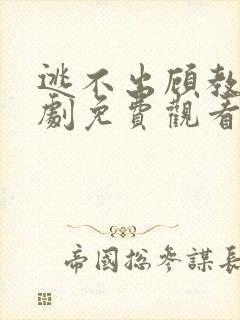 逃不出顾教
劇免費觀看
帝國総参謀長